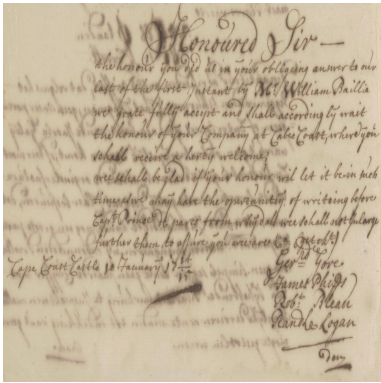 Honoured Sir —
The honour you did us in your obliging answer to our
last of the first Instant by Mr William Baillie
we gratefully accept and shall accordingly wait
the honour of your Company at Cabo Coast, where you
shall receive a harty welcome;
we shall be glad if your honour will let it be in such
time as we may have the opurtunity of writeing before
Capt Prince parts from why dall we shall not Inlarge
further then to assure you we are &c
Cape Coast Castle 10 January 17
Gerrd Gore
James Phipps
Robt Bleau
Logan